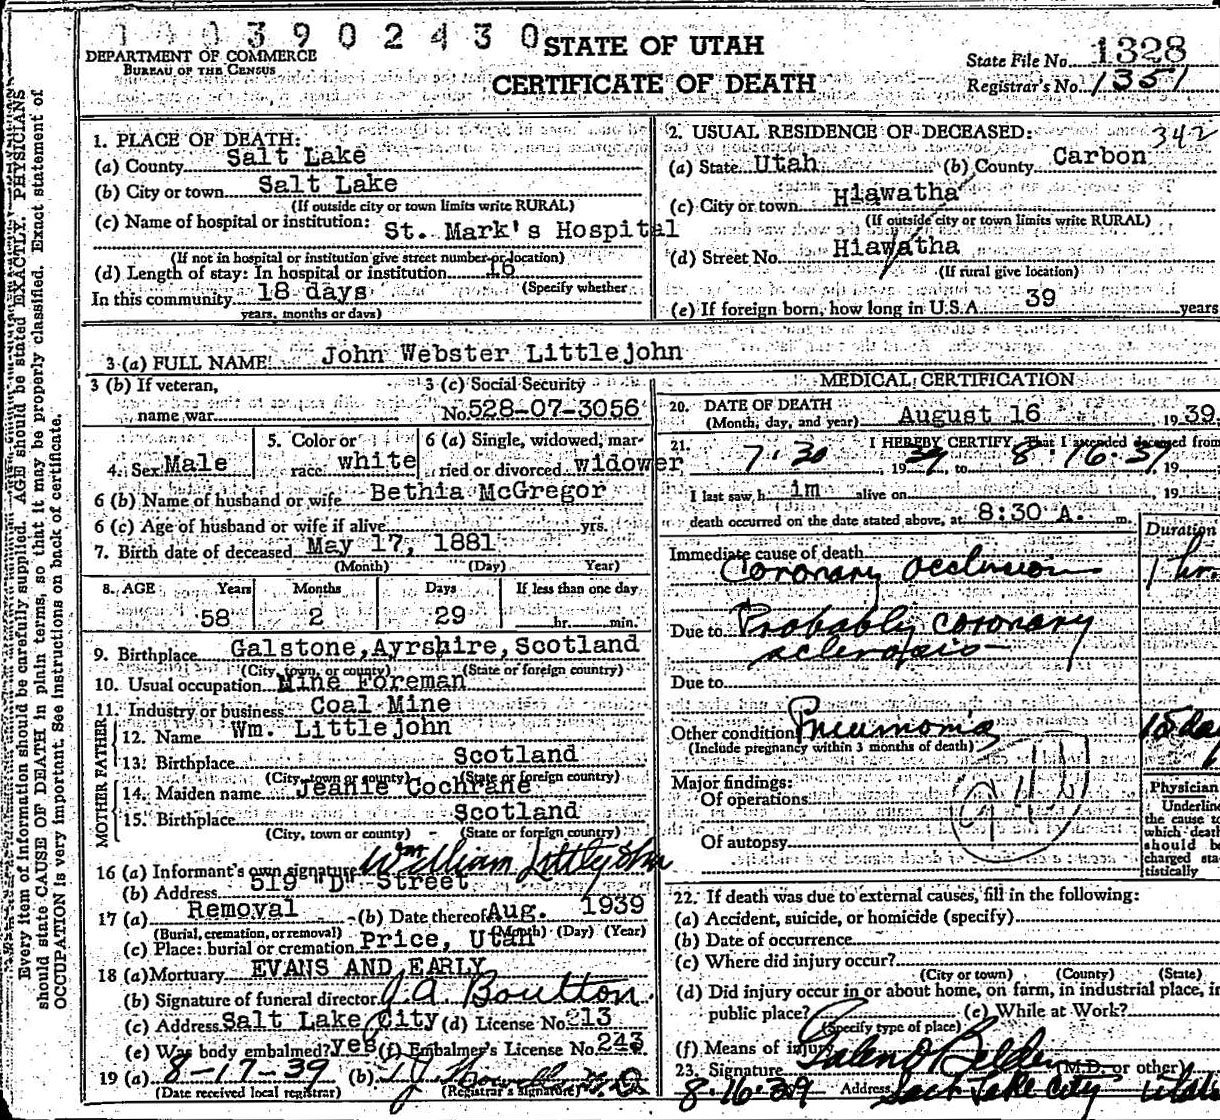 1 4 0 3 9 0 2 4 3 0
DEPARTMENT OF COMMERCE
BUREAU OF THE CENSUS
STATE OF UTAH
CERTIFICATE OF DEATH
State File No. 1328
Registrar's No. 1351
Every item of information should be carefully supplied. AGE should be stated EXACTLY. PHYSICIANS
should state CAUSE OF DEATH in plain terms, so that it may be properly classified. Exact statement of
OCCUPATION is very important. See instructions on back of certificate.
1. PLACE OF DEATH:
(a) County Salt Lake
(b) City or town Salt Lake
(If outside city or town limits write RURAL)
(c) Name of hospital or institution: St. Mark's Hospital
(If not in hospital or institution give street number or location)
(d) Length of stay: In hospital or institution 16
(Specify whether
In this community 18 days
years, months or days)
2. USUAL RESIDENCE OF DECEASED: 342
(a) State Utah (b) County Carbon
(c) City or town Hiawatha
(If outside city or town limits write RURAL)
(d) Street No. Hiawatha
(If rural give location)
(e) If foreign born, how long in U.S.A. 39 years
3 (a) FULL NAME John Webster Littlejohn
3 (b) If veteran,
name war
3 (c) Social Security
No. 528-07-3056
4. Sex Male
5. Color or
race white
6 (a) Single, widowed, mar-
ried or divorced widower
6 (b) Name of husband or wife Bethia McGregor
6 (c) Age of husband or wife if alive yrs.
7. Birth date of deceased May 17, 1881
(Month) (Day) Year)
8. AGE Years Months Days If less than one day
58 2 29 hr. min.
9. Birthplace Galstone, Ayrshire, Scotland
(City, town, or county) (State or foreign country)
10. Usual occupation Mine Foreman
11. Industry or business Coal Mine
FATHER
12. Name Wm. Littlejohn
13. Birthplace Scotland
(City, town or county) (State or foreign country)
MOTHER
14. Maiden name Jeanie Cochrane
15. Birthplace Scotland
(City, town or county) (State or foreign country)
16 (a) Informant's own signature William Littlejohn
(b) Address 519 "D" Street
17 (a) Removal (b) Date thereof Aug. 1939
(Burial, cremation, or removal) (Month) (Day) (Year)
(c) Place: burial or cremation Price, Utah
18 (a) Mortuary EVANS AND EARLY
(b) Signature of funeral director J. A. Boulton
(c) Address Salt Lake City (d) License No. 213
(e) Was body embalmed? yes (f) Embalmer's License No. 243
19 (a) 8-17-39 (b)
(Date received local registrar) (Registrar's signature)
MEDICAL CERTIFICATION
20. DATE OF DEATH
(Month, day, and year) August 16 1939
21. I HEREBY CERTIFY, That I attended deceased from
7-30 , 1939, to 8-16-39 19
I last saw h im alive on , 19
death occurred on the date stated above, at 8:30 A. m.
Duration
Immediate cause of death
Coronary occlusion 1 hr.
Due to Probably coronary
sclerosis
Due to
Other condition Pneumonia
(Include pregnancy within 3 months of death)
Major findings:
Of operations
94b
Of autopsy
Physician
Underline
the cause to
which death
should be
charged sta-
tistically
22. If death was due to external causes, fill in the following:
(a) Accident, suicide, or homicide (specify)
(b) Date of occurrence
(c) Where did injury occur?
(City or town) (County) (State)
(d) Did injury occur in or about home, on farm, in industrial place, in
public place? (e) While at Work?
(Specify type of place)
(f) Means of injury
23. Signature (M.D. or other)
8-16-39 Address Salt Lake City Utah